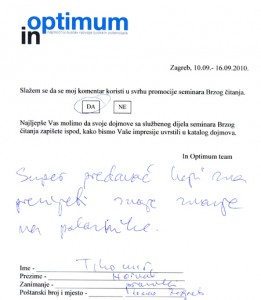 in optimum
Zagreb, 10.09.- 16.09.2010.
Slažem se da se moj komentar koristi u svrhu promocije seminara Brzog čitanja.
DA NE
Najljepše Vas molimo da svoje dojmove sa službenog dijela seminara Brzog
čitanja zapišete ispod, kako bismo Vaše impresije uvrstili u katalog dojmova.
In Optimum team
Super predavač koji zna
prenijeti svoje znanje
na polaznike.
Ime - Tihomir
Prezime - Horvat
Zanimanje -
Poštanski broj i mjesto -